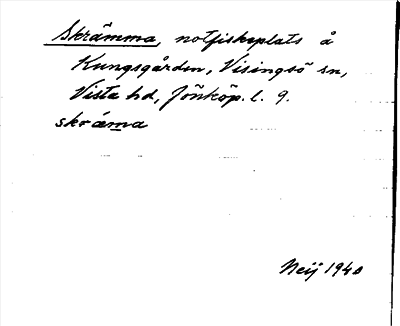 Skrämma, notfiskeplats å
Kungsgården, Visingsö sn,
Vista hd, Jönköp. l. 9.
skráma
Neij 1940